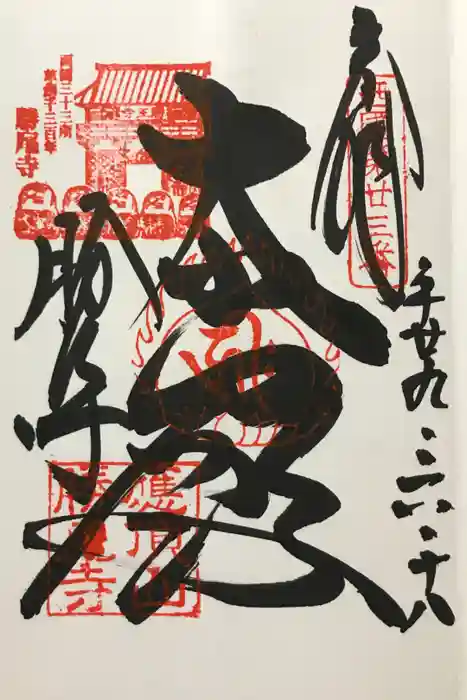 奉拝
西国第廿三番
平廿九、六、十八
大悲殿
勝尾寺
西国三十三所
草創千三百年
勝尾寺
應頂山
勝尾寺